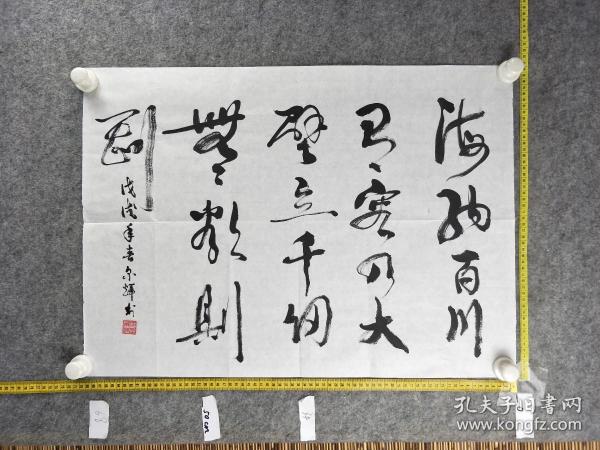 海纳百川
有容乃大
壁立千仞
無欲則
剛
戊戌年春
孔夫子旧书网
www.kongfz.com
50cm